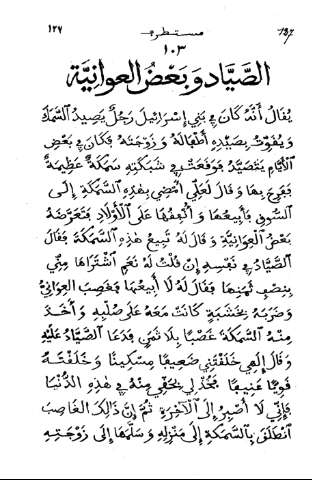 ١٢٦ مستطرف 137
١٠٣
الصَّيَّاد وَبَعْضُ العوانيَّة
يُقَالُ أَنَّهُ كَانَ فِي بَنِي إِسْرَائِيلَ رَجُلٌ يَصِيدُ السَّمَكَ
وَيُقَوِّتُ بِصَيْدِهِ أَطْفَالَهُ وَزَوْجَتَهُ فَكَانَ فِي بَعْضِ
الْأَيَّامِ يَتَصَيَّدُ فَوَقَعَتْ فِي شَبَكَتِهِ سَمَكَةٌ عَظِيمَةٌ
فَفَرِحَ بِهَا وَقَالَ لَعَلِّي أَمْضِي بِهٰذِهِ السَّمَكَةِ إِلَى
السُّوقِ فَأَبِيعُهَا وَأُنْفِقُهَا عَلَى الْأَوْلَادِ فَتَعَرَّضَهُ
بَعْضُ الْعَوَانِيَّةِ وَقَالَ لَهُ تَبِيعُ هٰذِهِ السَّمَكَةَ فَقَالَ
الصَّيَّادُ فِي نَفْسِهِ إِنْ قُلْتُ لَهُ نَعَمْ اشْتَرَاهَا مِنِّي
بِنِصْفِ ثَمَنِهَا فَقَالَ لَهُ لَا أَبِيعُهَا فَغَضِبَ الْعَوَانِيُّ
وَضَرَبَهُ بِخَشَبَةٍ كَانَتْ مَعَهُ عَلَى صُلْبِهِ وَأَخَذَ
مِنْهُ السَّمَكَةَ غَصْبًا بِلَا ثَمَنٍ فَدَعَا الصَّيَّادُ عَلَيْهِ
وَقَالَ إِلٰهِي خَلَقْتَنِي ضَعِيفًا مِسْكِينًا وَخَلَقْتَهُ
قَوِيًّا عَنِيفًا فَخُذْ لِي بِحَقِّي مِنْهُ فِي هٰذِهِ الدُّنْيَا
فَإِنِّي لَا أَصْبِرُ إِلَى الْآخِرَةِ ثُمَّ إِنَّ ذَالِكَ الْغَاصِبَ
انْطَلَقَ بِالسَّمَكَةِ إِلَى مَنْزِلِهِ وَسَلَّمَهَا إِلَى زَوْجَتِهِ